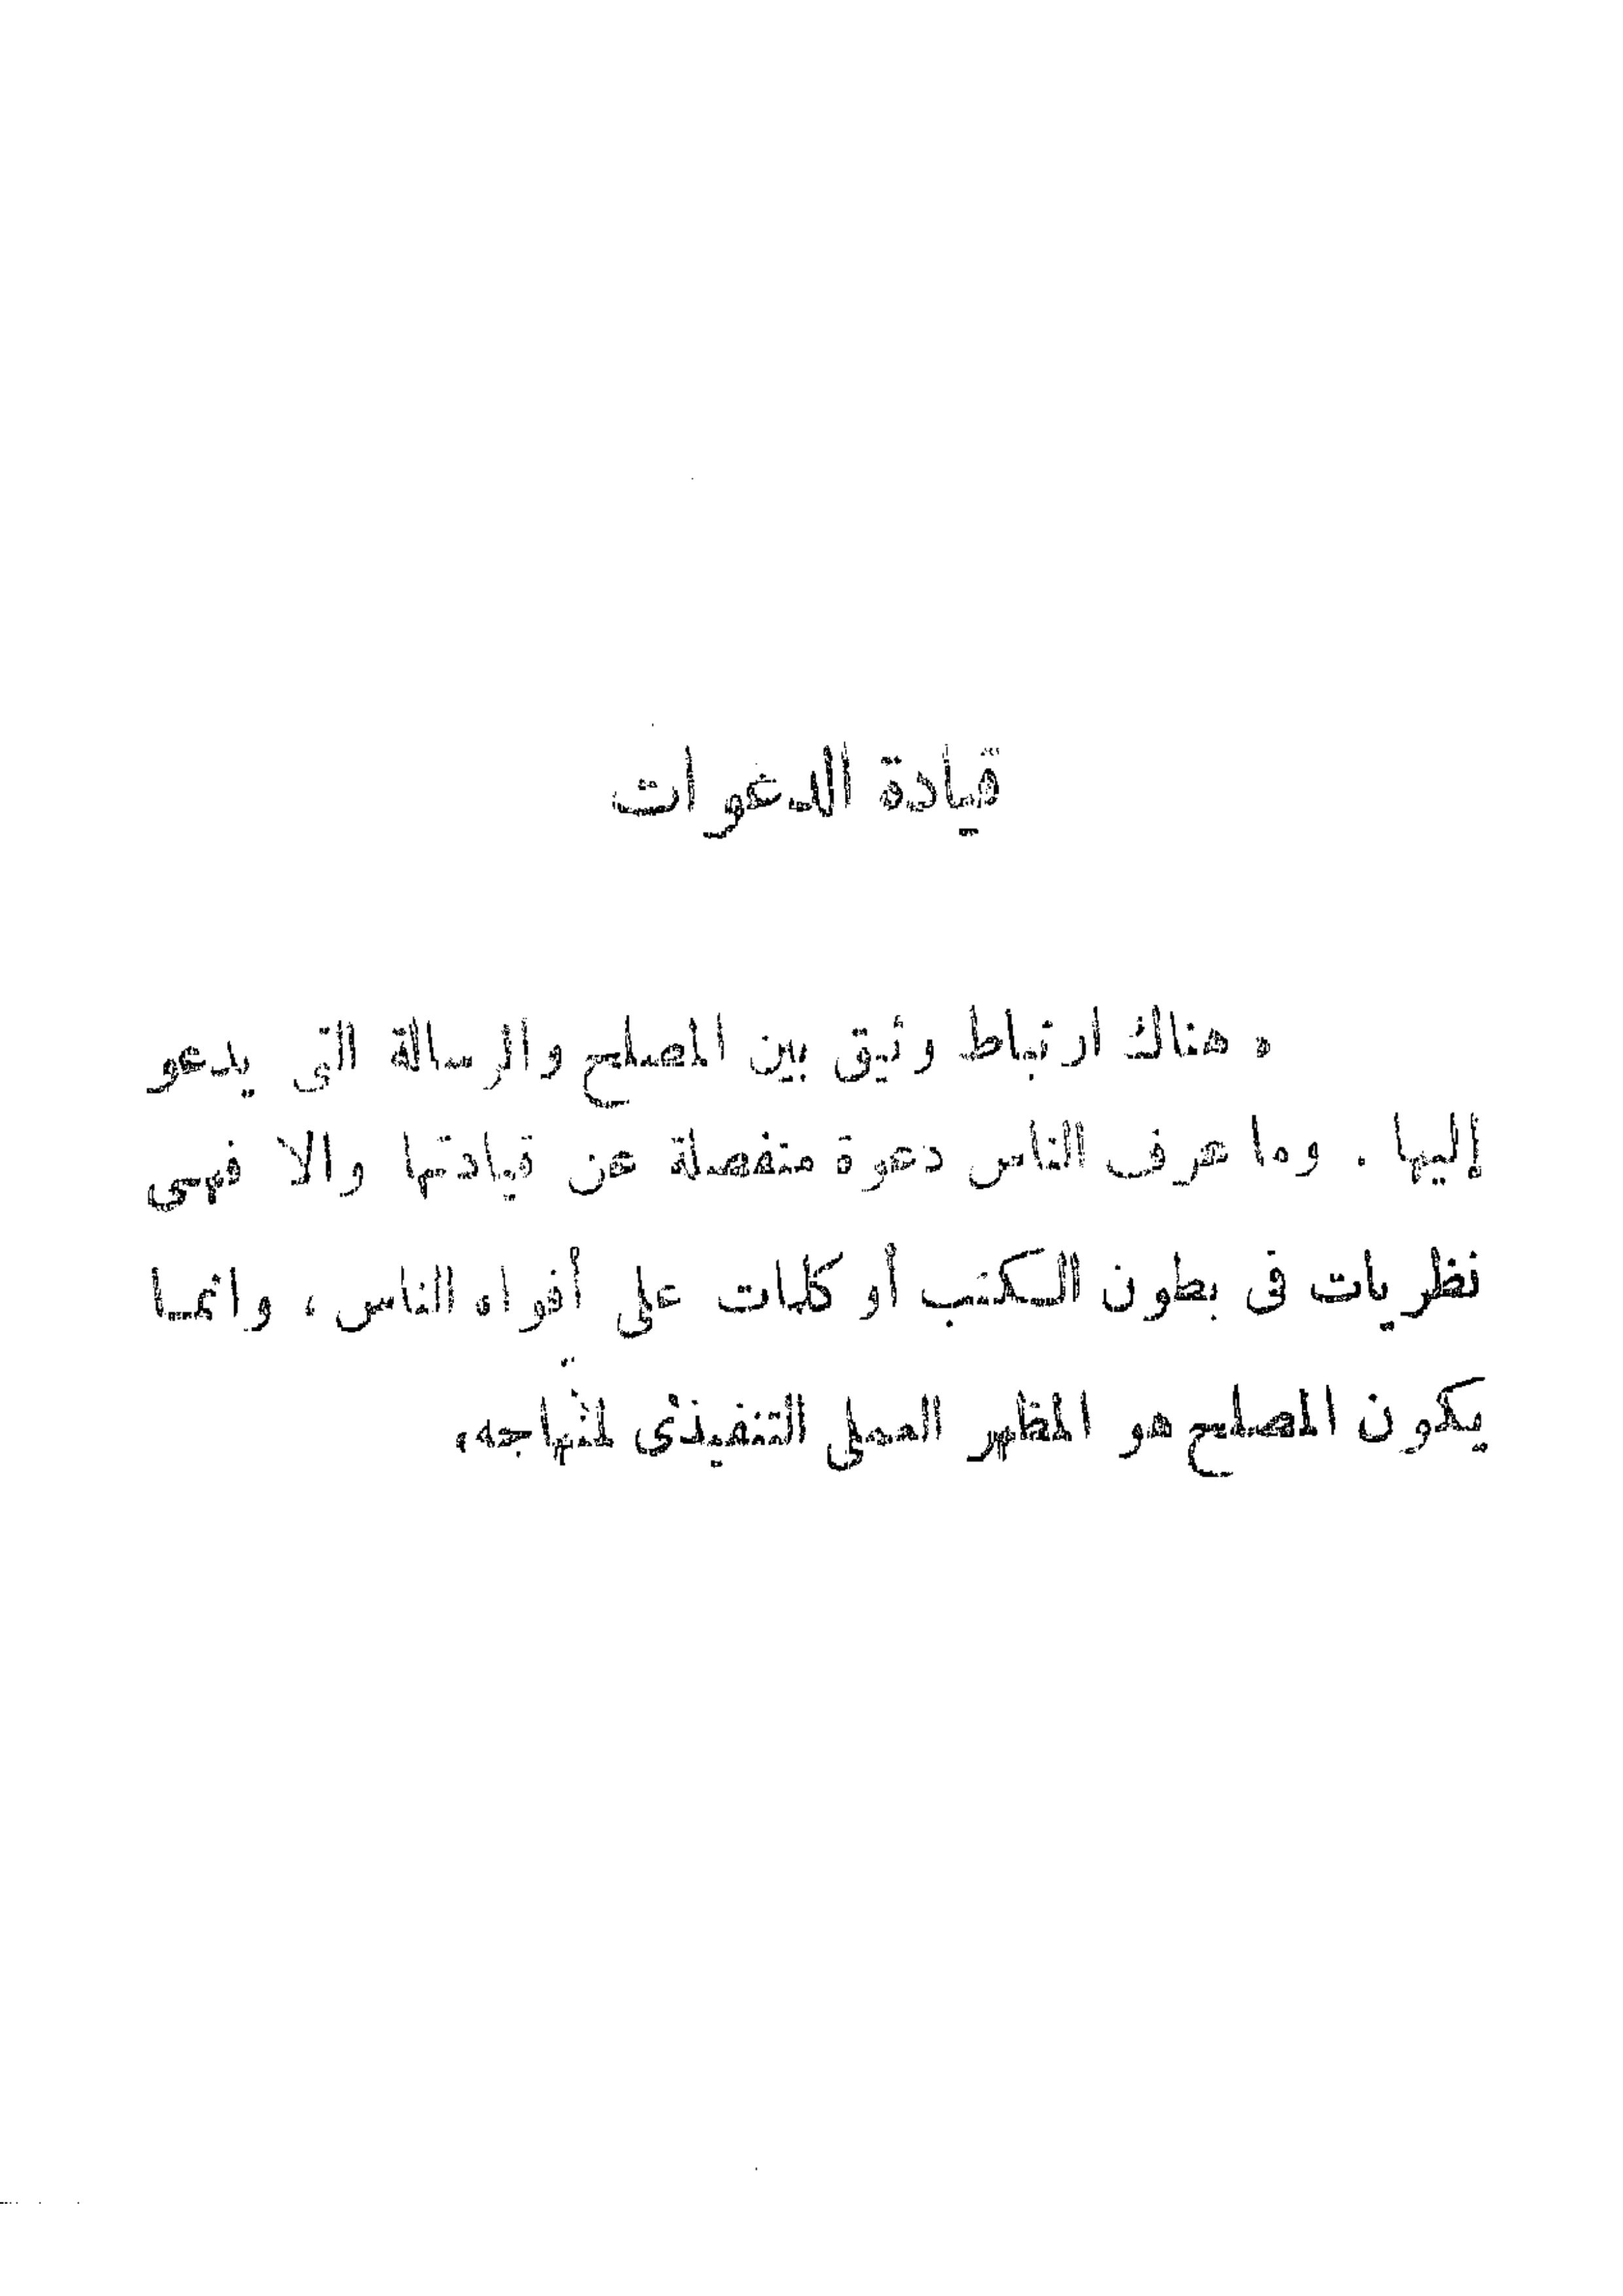 قيادة الدعوات
« هناك ارتباط وثيق بين المصلح والرسالة التى يدعو
إليها . وما عرف الناس دعوة منفصلة عن قيادتها والا فهى
نظريات فى بطون الكتب أو كلمات على أفواه الناس ، وانما
يكون المصلح هو المظهر العملى التنفيذى لمنهاجه »